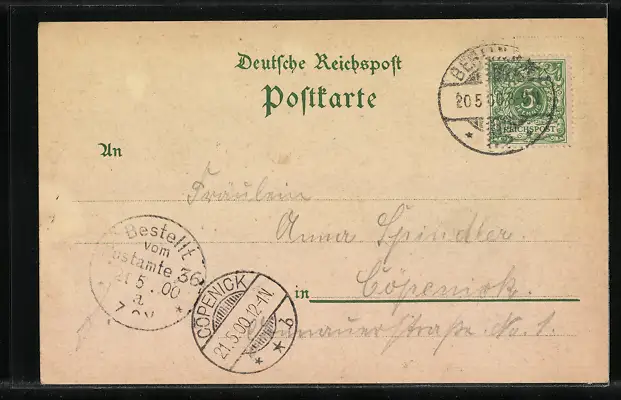 Deutsche Reichspost
Postkarte
BERLIN
20.5.00
5
REICHSPOST
An
Fräulein
Anna Spindler
in Cöpenick.
straße No. 1.
Bestellt
vom
Postamte 36
21 5 .00
a
CÖPENICK
21.5.00.12-1N.
* * b